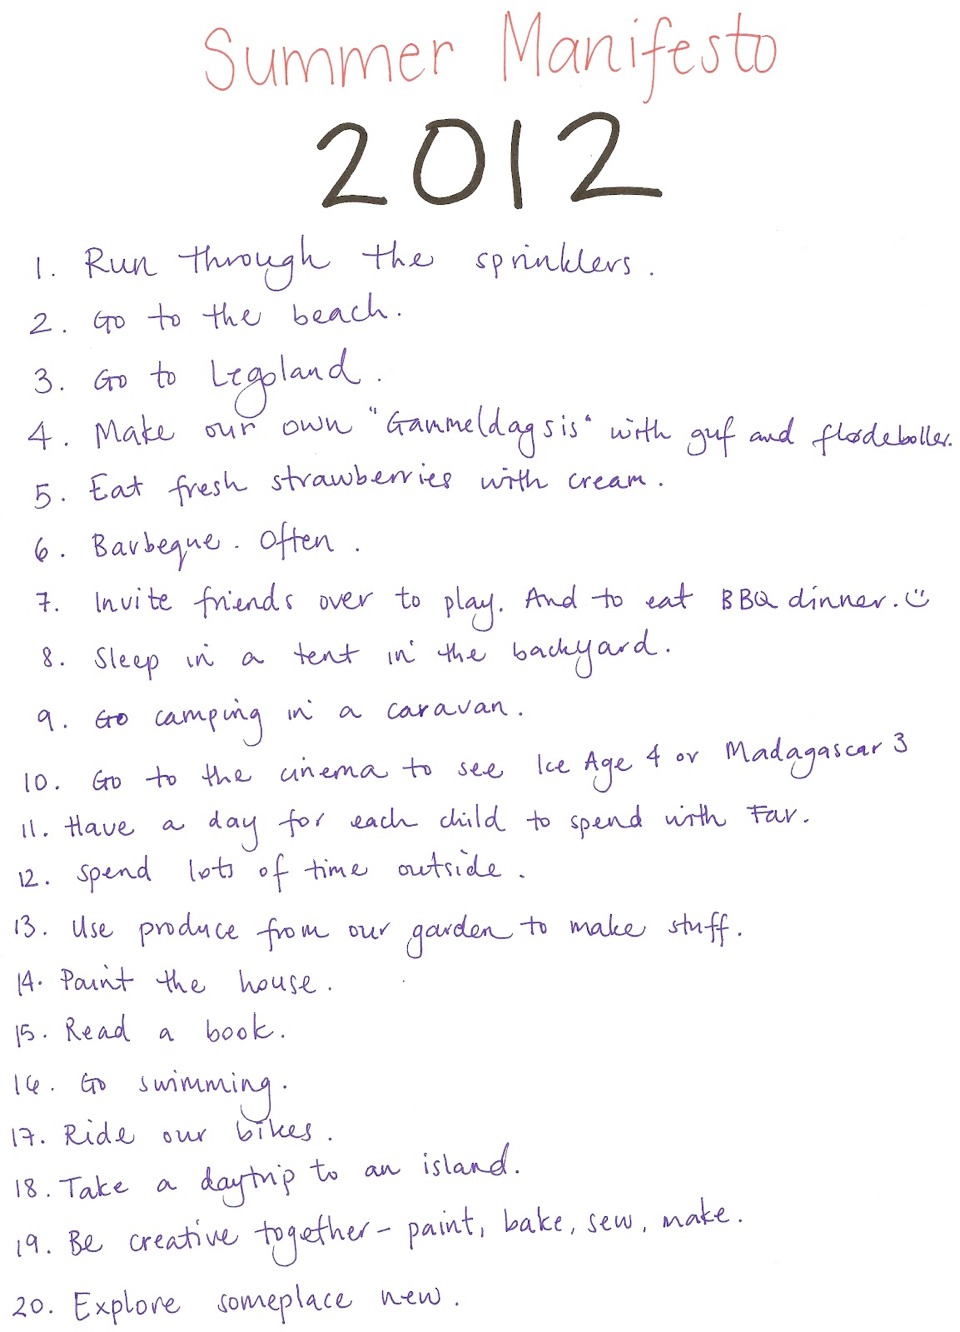 Summer Manifesto
2012
1. Run through the sprinklers.
2. Go to the beach.
3. Go to Legoland.
4. Make our own "Gammeldags is" with guf and flødeboller.
5. Eat fresh strawberries with cream.
6. Barbeque. Often.
7. Invite friends over to play. And to eat BBQ dinner. ☺
8. Sleep in a tent in the backyard.
9. Go camping in a caravan.
10. Go to the cinema to see Ice Age 4 or Madagascar 3
11. Have a day for each child to spend with Far.
12. Spend lots of time outside.
13. Use produce from our garden to make stuff.
14. Paint the house.
15. Read a book.
16. Go swimming.
17. Ride our bikes.
18. Take a daytrip to an island.
19. Be creative together - paint, bake, sew, make.
20. Explore someplace new.